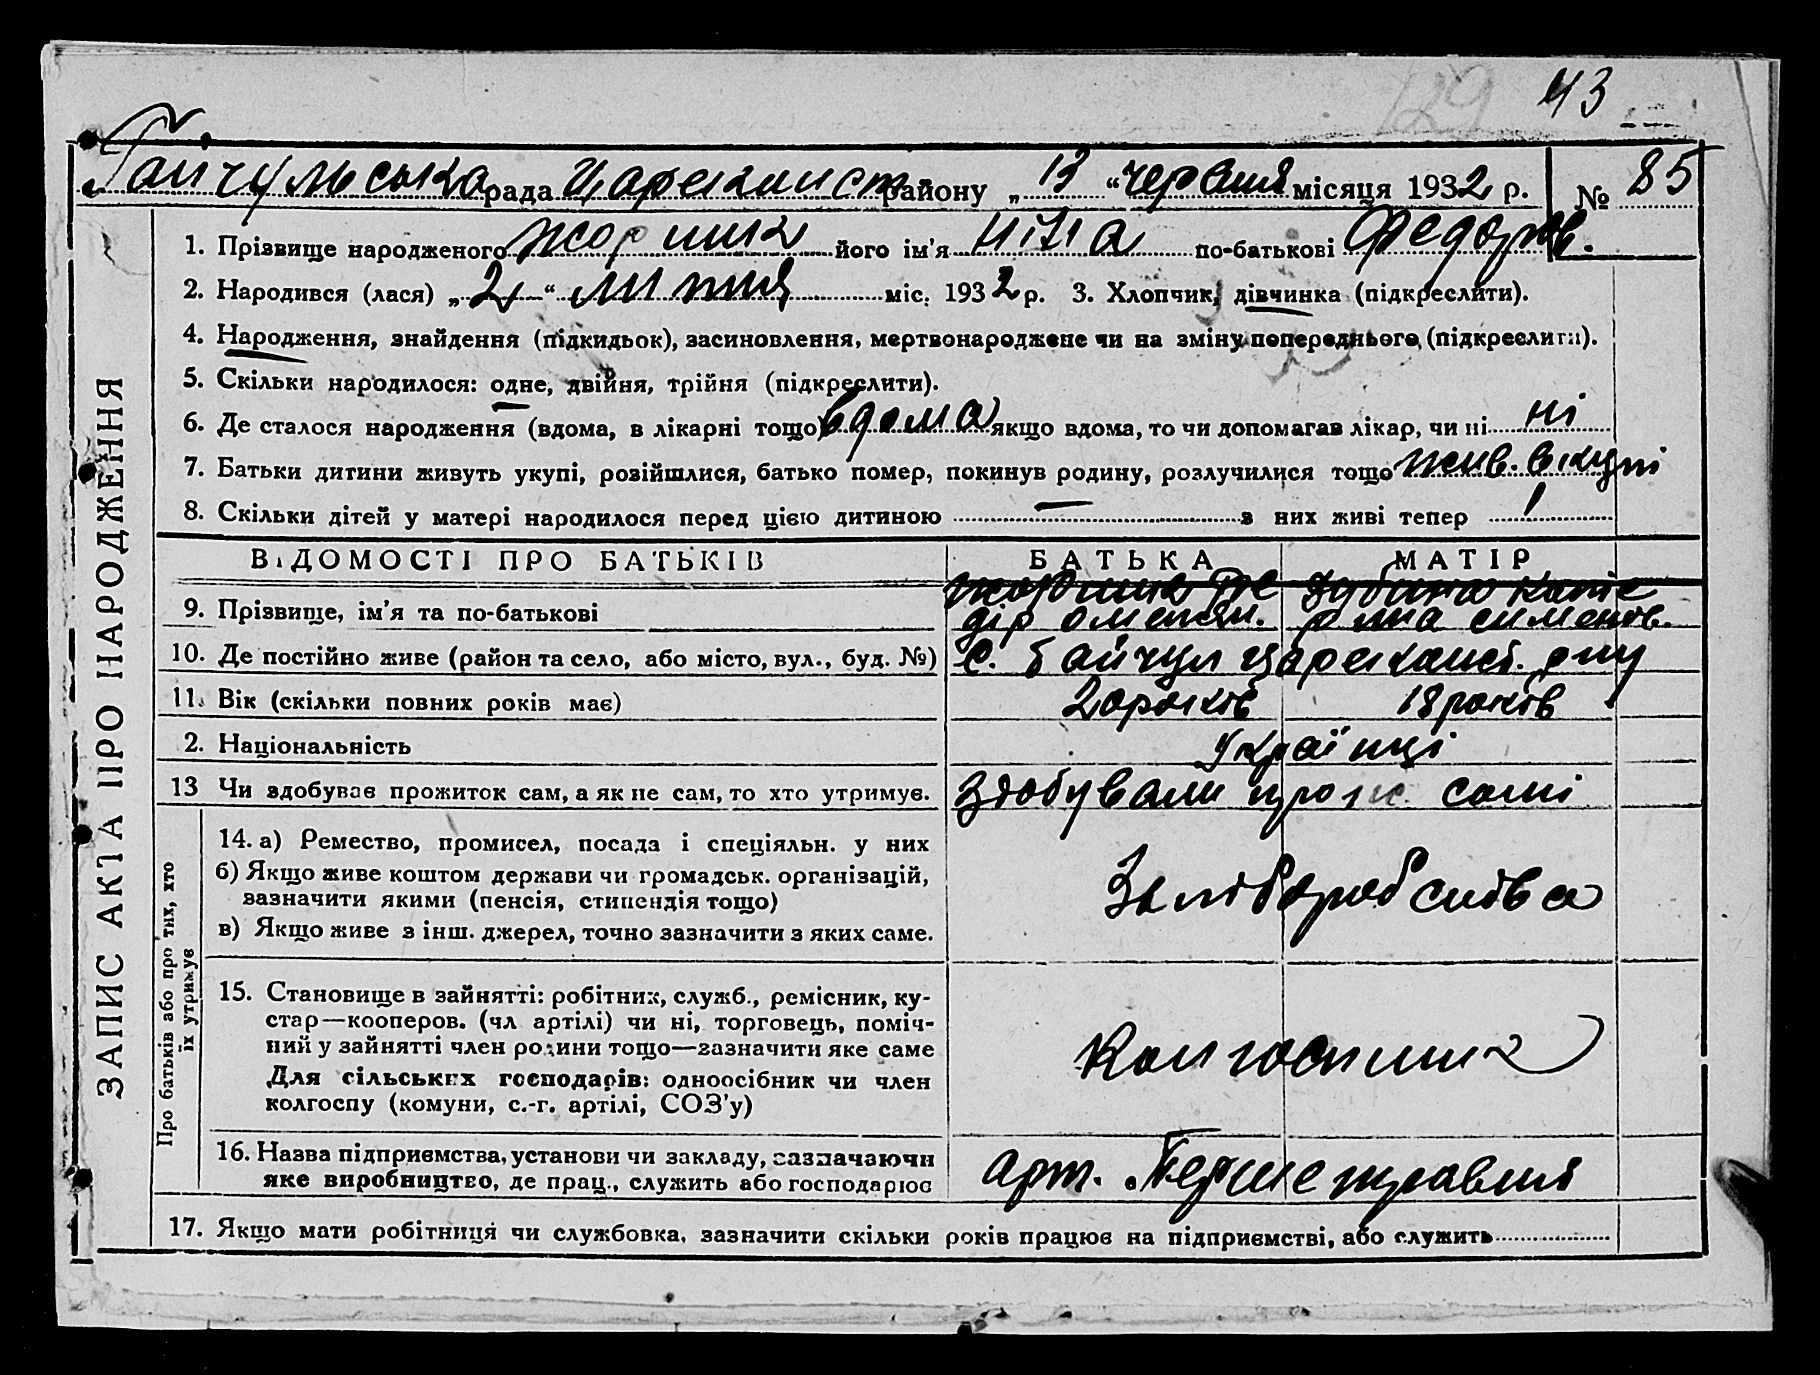 129 43
Гайчульська рада Царекопст району „ 13 “ червня місяця 1932 р. № 85
1. Прізвище народженого Жорник його ім'я Ніна по-батькові Федоров.
2. Народився (лася) „ 2 “ липня міс. 1932 р. 3. Хлопчик, дівчинка (підкреслити).
4. Народження, знайдення (підкидьок), засиновлення, мертвонароджене чи на зміну попереднього (підкреслити).
5. Скільки народилося: одне, двійня, трійня (підкреслити).
6. Де сталося народження (вдома, в лікарні тощо) вдома якщо вдома, то чи допомагав лікар, чи ні ні
7. Батьки дитини живуть укупі, розійшлися, батько помер, покинув родину, розлучилися тощо жив. вкупі
8. Скільки дітей у матері народилося перед цією дитиною — з них живі тепер 1
ЗАПИС АКТА ПРО НАРОДЖЕННЯ
ВІДОМОСТІ ПРО БАТЬКІВ БАТЬКА МАТІР
9. Прізвище, ім'я та по-батькові
10. Де постійно живе (район та село, або місто, вул., буд. №) с. Гайчул р-ну
11. Вік (скільки повних років має) 20 років 18 років
2. Національність Українці
13 Чи здобував прожиток сам, а як не сам, то хто утримує. Здобували прож. самі
Про батьків або про тих, хто їх утримує
14. а) Ремество, промисел, посада і спеціяльн. у них
б) Якщо живе коштом держави чи громадськ. організацій,
зазначити якими (пенсія, стипендія тощо)
в) Якщо живе з інш. джерел, точно зазначити з яких саме.
Хліборобства
15. Становище в зайнятті: робітник, служб., ремісник, ку-
стар—кооперов. (чл артілі) чи ні, торговець, поміч-
ний у зайнятті член родини тощо—зазначити яке саме
Для сільських господарів: одноосібник чи член
колгоспу (комуни, с.-г. артілі, СОЗ'у)
Колгоспник
16. Назва підприємства, установи чи закладу, зазначаючи
яке виробництво, де прац., служить або господарює
арт. Перше травня
17. Якщо мати робітниця чи службовка, зазначити скільки років працює на підприємстві, або служить